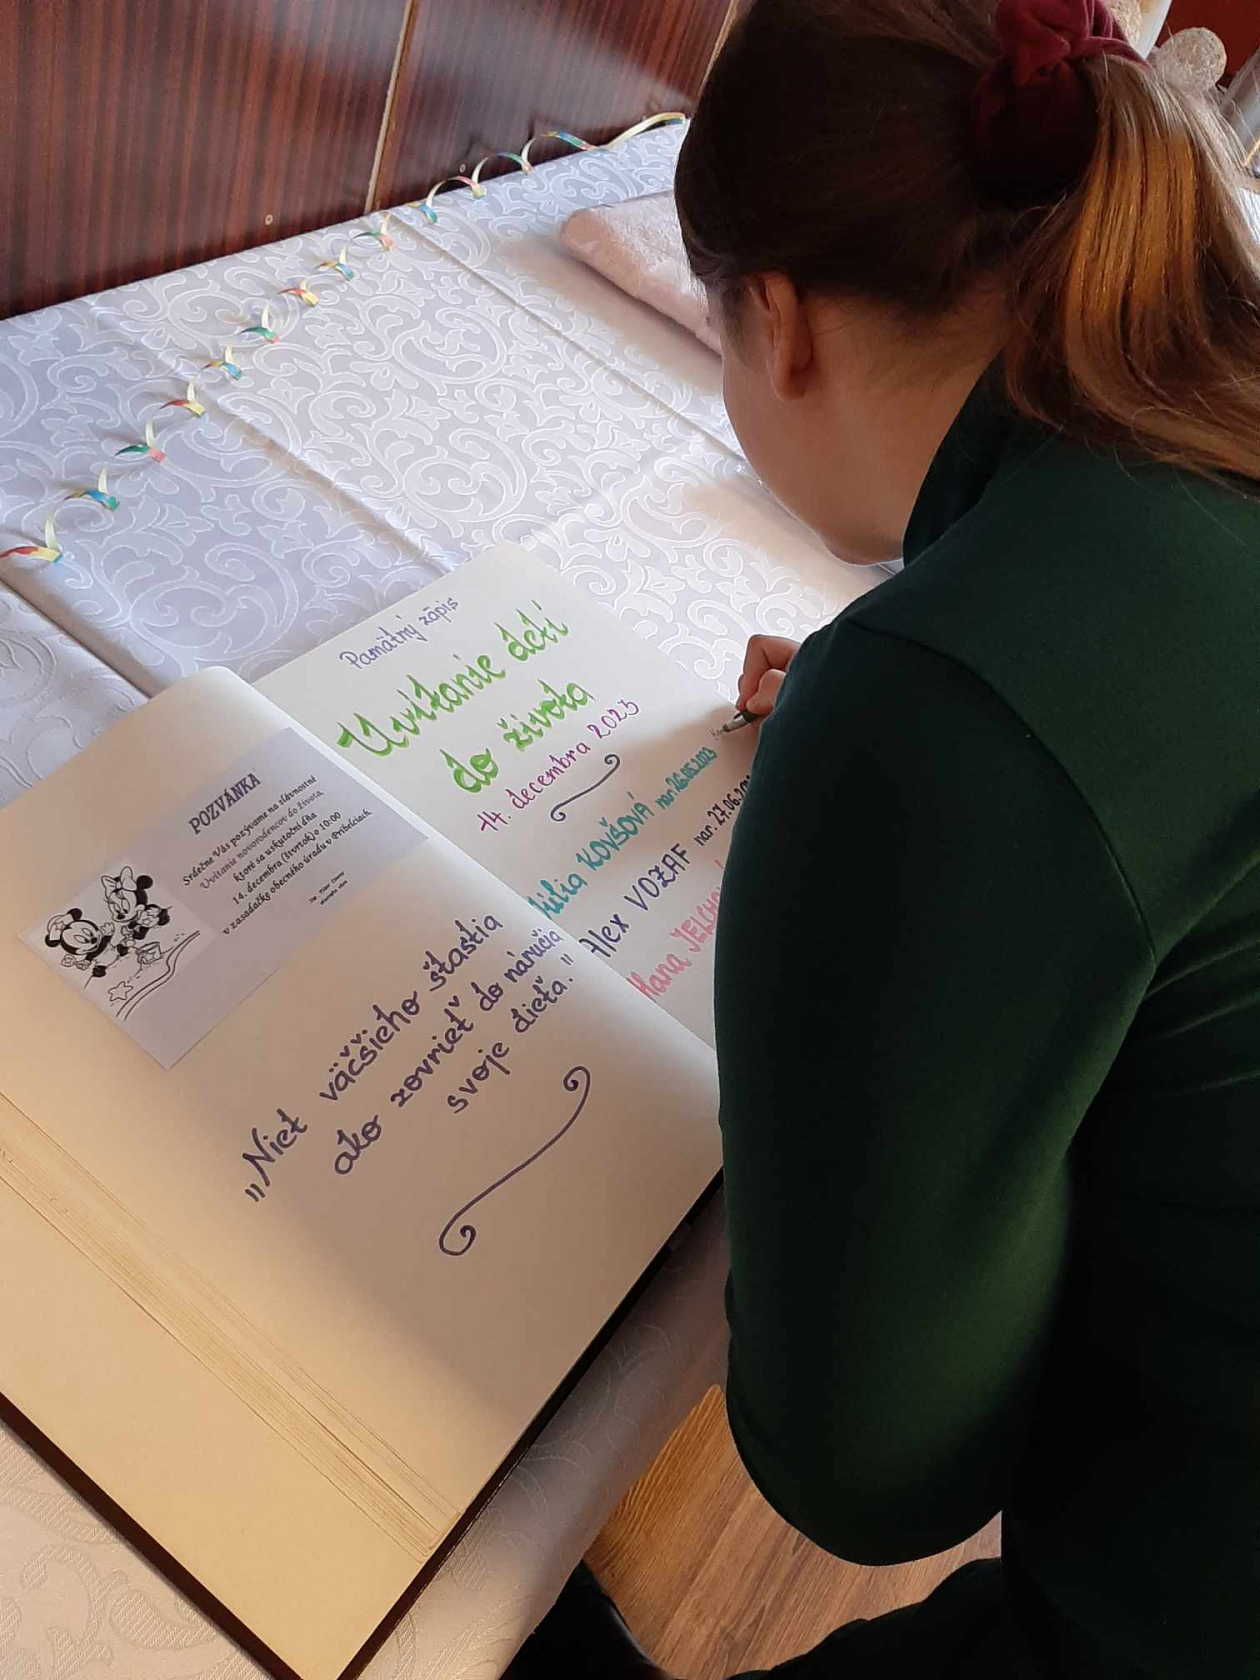 POZVÁNKA
Srdečne Vás pozývame na slávnostné
Uvítanie novorodencov do života,
ktoré sa uskutoční dňa
14. decembra (štvrtok) o 10:00
v zasadačke obecného úradu v Príbelciach.
„Niet väčšieho šťastia
ako zovrieť do náručia
svoje dieťa."
Pamätný zápis
Uvítanie detí
do života
14. decembra 2023
KOVŠOVÁ nar. 26.05.2023
Alex VOZAF nar. 27.06.
Hana